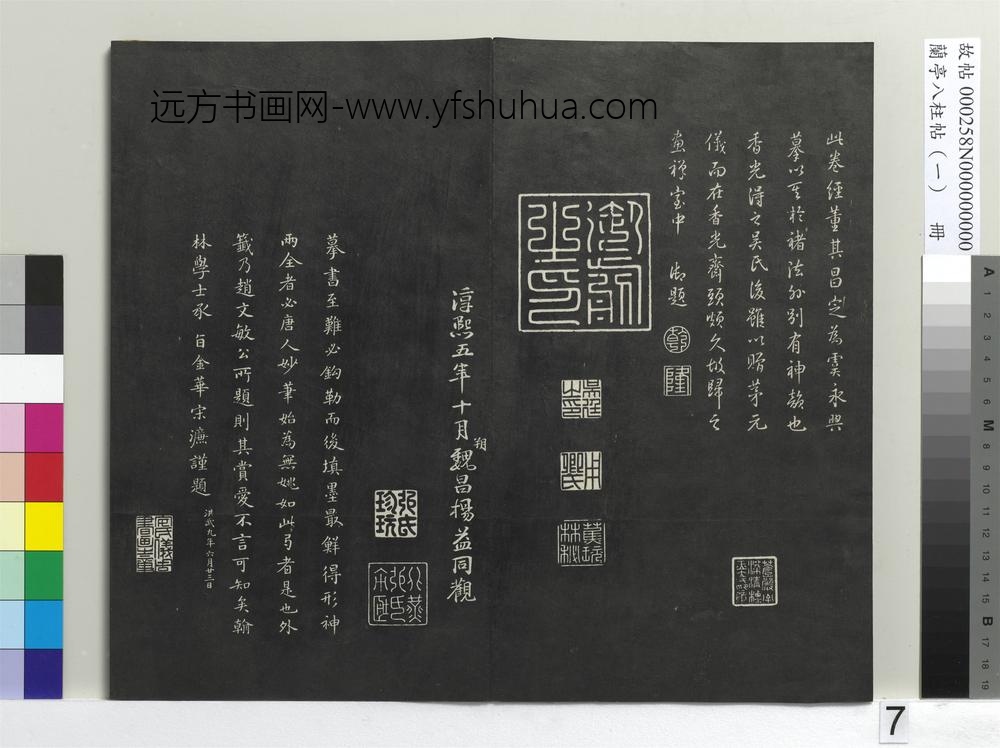 远方书画网-www.yfshuhua.com
故帖 000258N000000000
蘭亭八柱帖(一) 冊
此卷經董其昌定為虞永興
摹以其於褚法外別有神韻也
香光得之吳氏後雖以贈茅元
儀而在香光齋頭頗久故歸之
畫禪室中 御題
乾
隆
淳熙五年十月朔魏昌楊益同觀
張氏珍玩
摹書至難必鉤勒而後填墨最鮮得形神
兩全者必唐人妙筆始為無媿如此局者是也外
籤乃趙文敏公所題則其賞愛不言可知矣翰
林學士承旨金華宋濂謹題
洪武九年六月廿三日
7
A 1 2 3 4 5 6 M 8 9 10 11 12 13 14 15 B 17 18 19